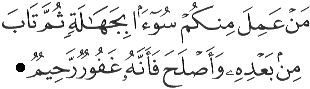 مَنْ عَمِلَ مِنكُمْ سُوٓءًۢا بِجَهَـٰلَةٍۢ ثُمَّ تَابَ
مِنۢ بَعْدِهِۦ وَأَصْلَحَ فَأَنَّهُۥ غَفُورٌۭ رَّحِيمٌۭ ●